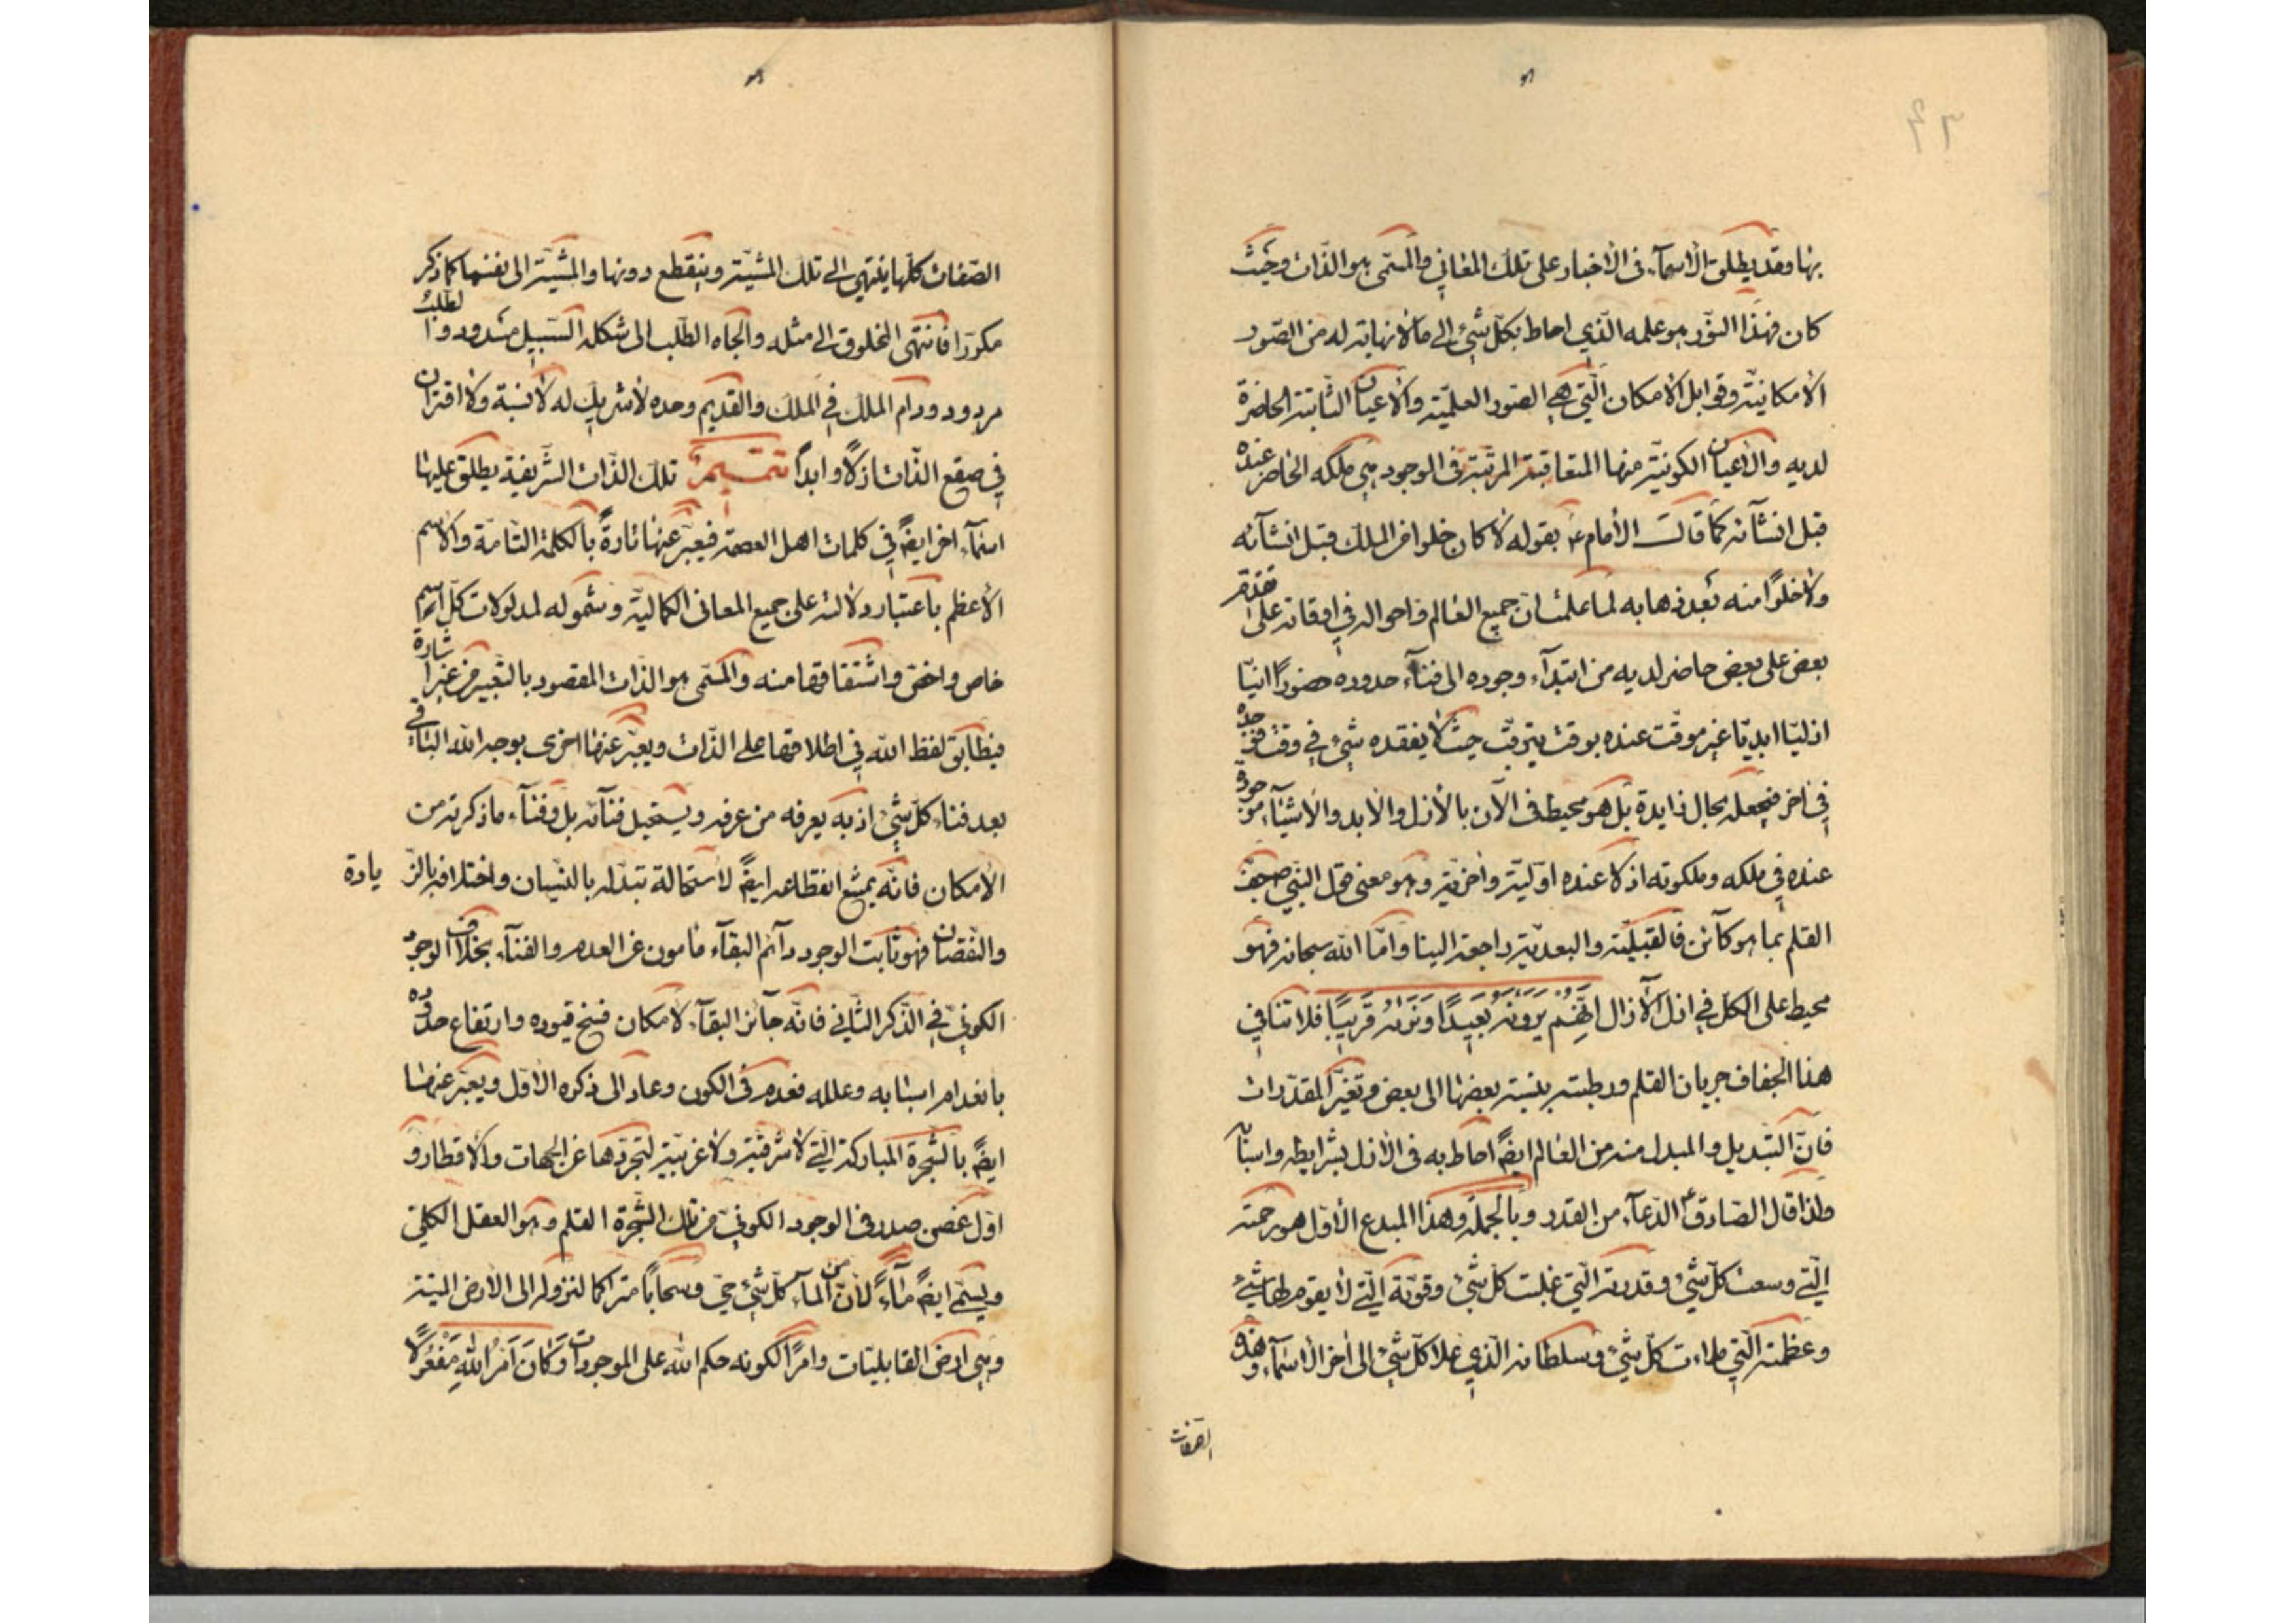 هو
٦٦
بها وقد يطلق الأسمآء فى الأخبار على تلك المعاني والمسمّى هو الذّات وحيث
كان فهذا النّور هو علمه الّذي احاط بكلّ شئ الى ما لا نهاية له من الصّور
الأمكانيّة وقوابل الأمكان الّتي هي الصّور العلميّة والأعيان الثّابتة الحاضرة
لديه والأعيان الكونيّة منها المتعاقبة المرتّبة فى الوجود هي ملكه الحاضر عنده
قبل انشآئه كما قال الأمام ع بقوله لا كان خلوا من الملك قبل انشآئه
ولا خلوًا منه بعد ذهابه لما علمت انّ جميع العالم واحواله في اوقاته على تقدّم
بعض على بعض حاضر لديه من ابتدآء وجوده الى فنآء حدوده حضورًا انيّا
ازليّا ابديّا غير موقّت عنده بوقت يترقّب حيث لا يفقده شئ في وقت فوجده
في اخر فيجعله بحال زايدة بل هو محيط فى الآن بالأزل والأبد والأشيآء موجودة
عنده في ملكه وملكوته اذ لا عنده اوّليّة واخريّة وهو معنى قول النّبي ص جفّ
القلم بما هو كآئن فالقبليّة والبعديّة راجعة الينا وامّا الله سبحانه فهو
محيط على الكلّ في ازل الآزال انّهم يرونه بعيدًا ونريه قريبًا فلا تنافي
هذا الجفاف جريان القلم ورطبته بنسبة بعضها الى بعض وتغيّر المقدّرات
فانّ التّبديل والمبدل منه من العالم ايضً احاط به فى الأزل بشرايطه واسبابه
ولذا قال الصّادق ع الدّعآء من القدر وبالجملة وهذا المبدع الأوّل هو رحمته
الّتي وسعت كلّ شئ وقدرته الّتي غلبت كلّ شئ وقوّته الّتي لا يقوم لها شئ
وعظمته الّتي ملاءت كلّ شئ وسلطانه الّذي علا كلّ شئ الى اخر الأسمآء وهذه
الصّفات
هو
الصّفات كلّها ينتهي الى تلك المشيّة وينقطع دونها والمشيّة الى نفسها كما ذكر
مكرّرًا فانتهى المخلوق الى مثله والجاه الطّلب الى شكله السّبيل مسدود والطلب
مردود ودام الملك في الملك والقديم وحده لا شريك له لا نسبة ولا اقتران
في صقع الذّات ازلًا وابدًا تتميم تلك الذّات الشّريفة يطلق عليها
اسمآء اخر ايضً في كلمات اهل العصمة فيعبّر عنها تارةً بالكلمة التّامّة والأسم
الأعظم باعتبار دلالته على جميع المعانى الكماليّة وشموله لمدلولات كلّ اسم
خاص واخصّ واشتقاقها منه والمسمّى هو الذّات المقصود بالتّعبير من غير اشارة
فيطابق لفظ الله في اطلاقها على الذّات ويعبّر عنها اخرى بوجه الله الباقي
بعد فنآء كلّ شئ اذ به يعرفه من عرفه ويستحيل فنآئه بل وفنآء ما ذكرته من
الأمكان فانّه يمتنع انقطاعه ايضً لاستحالة تبدّله بالنّسيان واختلافه بالزّيادة
والنّقصان فهو ثابت الوجود دآئم البقآء مامون عن العدم والفنآء بخلاف الوجود
الكوني في الذّكر الثّاني فانّه جآئز البقآء لامكان فسخ قيوده وارتفاع حدوده
بانعدام اسبابه وعلله فعدم فى الكون وعاد الى ذكره الأوّل ويعبّر عنها
ايضً بالشّجرة المباركة الّتي لا شرقيّة ولا غربيّة لتجرّدها عن الجهات والأقطار و
اوّل غصن صدر فى الوجود الكوني من تلك الشّجرة القلم وهو العقل الكلّي
ويسمّى ايضً مآءً لأنّ من المآء كلّ شئ حيّ وسحابًا متراكما لنزوله الى الأرض الميّتة
وهي ارض القابليّات وامرًا لكونه حكم الله على الموجودات وَكَانَ اَمْرُ اللهِ مَفْعُولًا